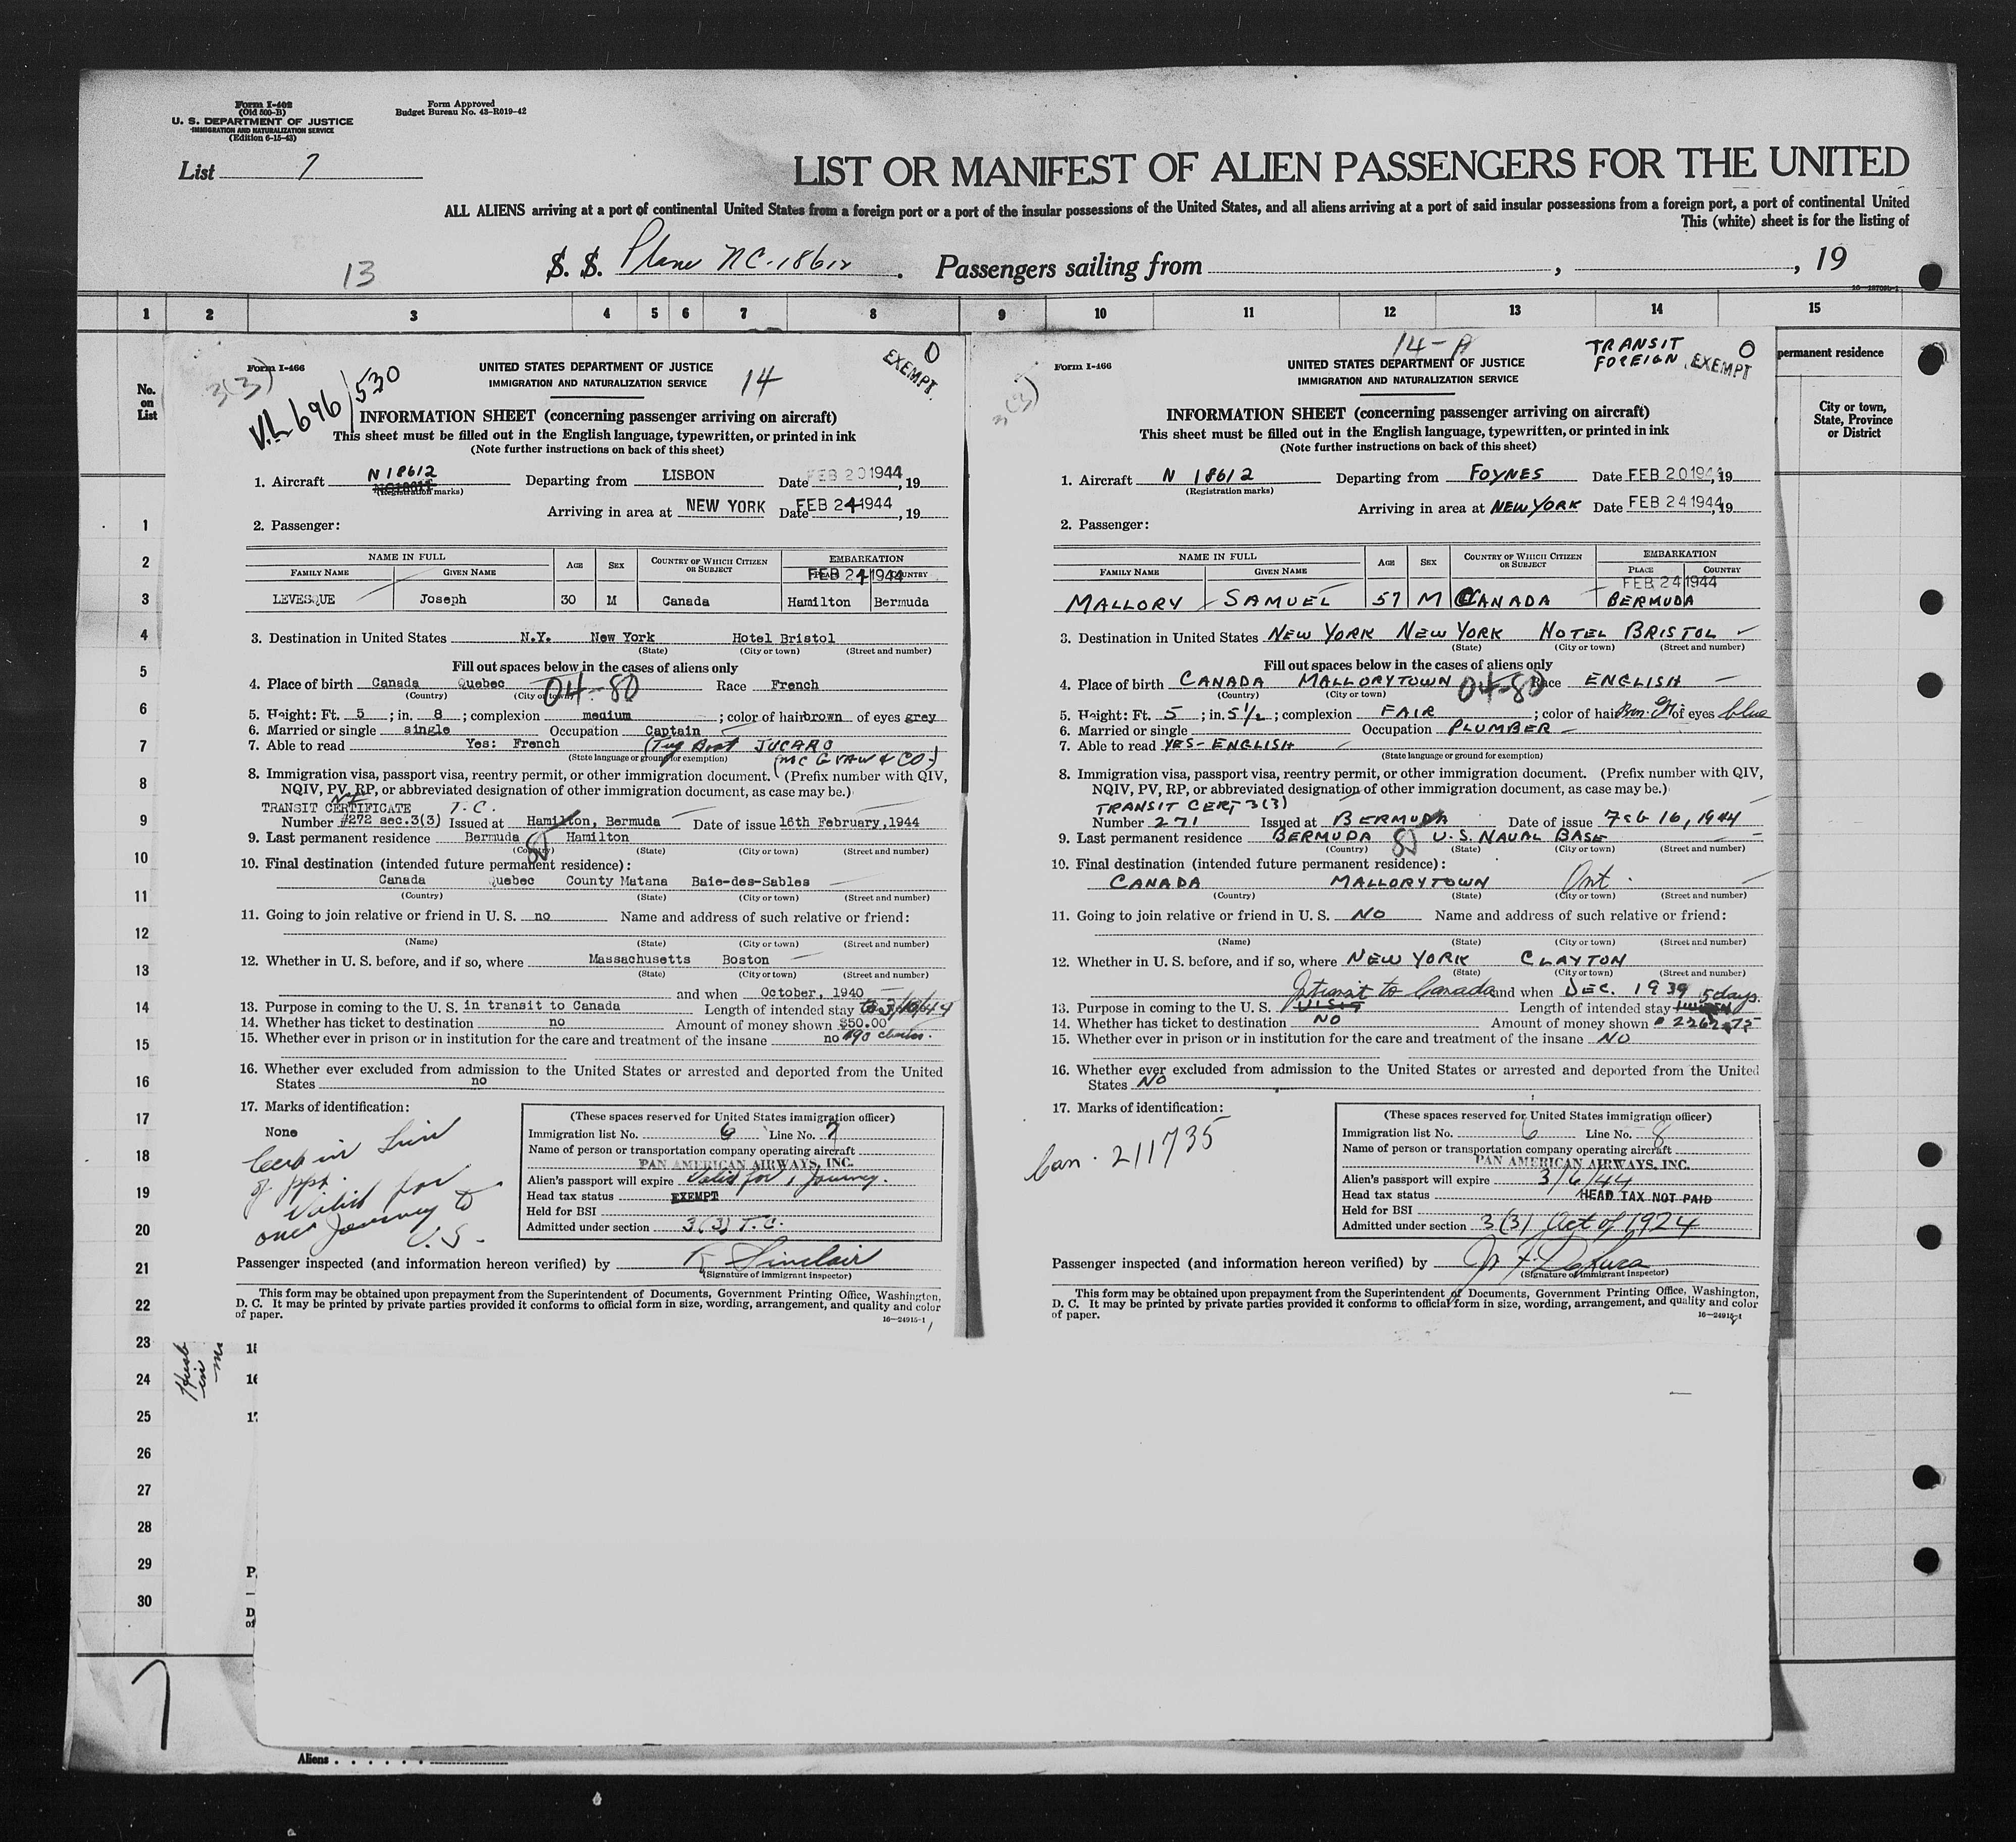 Form I-402
(Old 500-B)
U. S. DEPARTMENT OF JUSTICE
IMMIGRATION AND NATURALIZATION SERVICE
(Edition 6-15-43)
Form Approved
Budget Bureau No. 43-R019-42
List 7
LIST OR MANIFEST OF ALIEN PASSENGERS FOR THE UNITED
ALL ALIENS arriving at a port of continental United States from a foreign port or a port of the insular possessions of the United States, and all aliens arriving at a port of said insular possessions from a foreign port, a port of continental United
This (white) sheet is for the listing of
13
S. S. Plane NC-18612 . Passengers sailing from , , 19
1 2 3 4 5 6 7 8 9 10 11 12 13 14 15
No.
on
List
1
2
3
4
5
6
7
8
9
10
11
12
13
14
15
16
17
18
19
20
21
22
23
24
25
26
27
28
29
30
Form I-466
3(3)
V.L 696/530
UNITED STATES DEPARTMENT OF JUSTICE
IMMIGRATION AND NATURALIZATION SERVICE
14
0
EXEMPT.
INFORMATION SHEET (concerning passenger arriving on aircraft)
This sheet must be filled out in the English language, typewritten, or printed in ink
(Note further instructions on back of this sheet)
1. Aircraft N 18612 Departing from LISBON Date FEB 20 1944, 19
(Registration marks)
Arriving in area at NEW YORK Date FEB 24 1944, 19
2. Passenger:
NAME IN FULL AGE SEX COUNTRY OF WHICH CITIZEN OR SUBJECT EMBARKATION
FAMILY NAME GIVEN NAME PLACE COUNTRY
FEB 24 1944
LEVESQUE Joseph 30 M Canada Hamilton Bermuda
3. Destination in United States N.Y. New York Hotel Bristol
(State) (City or town) (Street and number)
Fill out spaces below in the cases of aliens only
4. Place of birth Canada Quebec 04-80 Race French
(Country) (City or town)
5. Height: Ft. 5 ; in. 8 ; complexion medium ; color of hair brown of eyes grey
6. Married or single single Occupation Captain
7. Able to read Yes: French (Tug Boat JUCARO
(State language or ground for exemption) (McGraw & Co.)
8. Immigration visa, passport visa, reentry permit, or other immigration document. (Prefix number with QIV,
NQIV, PV, RP, or abbreviated designation of other immigration document, as case may be.)
TRANSIT CERTIFICATE T.C.
Number #272 sec.3(3) Issued at Hamilton, Bermuda Date of issue 16th February, 1944
9. Last permanent residence Bermuda Hamilton
(Country) (State) (City or town) (Street and number)
10. Final destination (intended future permanent residence):
Canada Quebec County Matana Baie-des-Sables
(Country) (State) (City or town) (Street and number)
11. Going to join relative or friend in U. S. no Name and address of such relative or friend:
(Name) (State) (City or town) (Street and number)
12. Whether in U. S. before, and if so, where Massachusetts Boston
(State) (City or town) (Street and number)
and when October, 1940
13. Purpose in coming to the U. S. in transit to Canada Length of intended stay
14. Whether has ticket to destination no Amount of money shown $50.00
15. Whether ever in prison or in institution for the care and treatment of the insane no
16. Whether ever excluded from admission to the United States or arrested and deported from the United
States no
17. Marks of identification:
None
Cert in lieu
of ppt.
Valid for
one Journey to
U.S.
(These spaces reserved for United States immigration officer)
Immigration list No. 6 Line No. 7
Name of person or transportation company operating aircraft
PAN AMERICAN AIRWAYS, INC.
Alien's passport will expire Valid for 1 journey.
Head tax status EXEMPT
Held for BSI
Admitted under section 3(3) T.C.
Passenger inspected (and information hereon verified) by Sinclair
(Signature of immigrant inspector)
This form may be obtained upon prepayment from the Superintendent of Documents, Government Printing Office, Washington,
D. C. It may be printed by private parties provided it conforms to official form in size, wording, arrangement, and quality and color
of paper.
16-24915-1
Form I-466
3(3)
14-A
UNITED STATES DEPARTMENT OF JUSTICE
IMMIGRATION AND NATURALIZATION SERVICE
TRANSIT
FOREIGN
0
EXEMPT
INFORMATION SHEET (concerning passenger arriving on aircraft)
This sheet must be filled out in the English language, typewritten, or printed in ink
(Note further instructions on back of this sheet)
1. Aircraft N 18612 Departing from FOYNES Date FEB 20 1944, 19
(Registration marks)
Arriving in area at NEW YORK Date FEB 24 1944, 19
2. Passenger:
NAME IN FULL AGE SEX COUNTRY OF WHICH CITIZEN OR SUBJECT EMBARKATION
FAMILY NAME GIVEN NAME PLACE COUNTRY
FEB 24 1944
MALLORY SAMUEL 57 M CANADA BERMUDA
3. Destination in United States NEW YORK NEW YORK HOTEL BRISTOL
(State) (City or town) (Street and number)
Fill out spaces below in the cases of aliens only
4. Place of birth CANADA MALLORYTOWN 04-80 Race ENGLISH
(Country) (City or town)
5. Height: Ft. 5 ; in. 5½ ; complexion FAIR ; color of hair Brn. Gr. of eyes blue
6. Married or single Occupation PLUMBER
7. Able to read YES-ENGLISH
(State language or ground for exemption)
8. Immigration visa, passport visa, reentry permit, or other immigration document. (Prefix number with QIV,
NQIV, PV, RP, or abbreviated designation of other immigration document, as case may be.)
TRANSIT CERT 3(3)
Number 271 Issued at BERMUDA Date of issue Feb 16, 1944
9. Last permanent residence BERMUDA U.S. NAVAL BASE
(Country) (State) (City or town) (Street and number)
10. Final destination (intended future permanent residence):
CANADA MALLORYTOWN Ont.
(Country) (State) (City or town) (Street and number)
11. Going to join relative or friend in U. S. NO Name and address of such relative or friend:
(Name) (State) (City or town) (Street and number)
12. Whether in U. S. before, and if so, where NEW YORK CLAYTON
(State) (City or town) (Street and number)
Intransit to Canada and when DEC. 1939 5 days.
13. Purpose in coming to the U. S. VISIT Length of intended stay
14. Whether has ticket to destination NO Amount of money shown
15. Whether ever in prison or in institution for the care and treatment of the insane NO
16. Whether ever excluded from admission to the United States or arrested and deported from the United
States NO
17. Marks of identification:
Can. 211735
(These spaces reserved for United States immigration officer)
Immigration list No. 6 Line No. 8
Name of person or transportation company operating aircraft
PAN AMERICAN AIRWAYS, INC.
Alien's passport will expire 3/6/44
Head tax status HEAD TAX NOT PAID
Held for BSI
Admitted under section 3(3) Act of 1924
Passenger inspected (and information hereon verified) by
(Signature of immigrant inspector)
This form may be obtained upon prepayment from the Superintendent of Documents, Government Printing Office, Washington,
D. C. It may be printed by private parties provided it conforms to official form in size, wording, arrangement, and quality and color
of paper.
16-24915-1
permanent residence
City or town,
State, Province
or District
7
Aliens